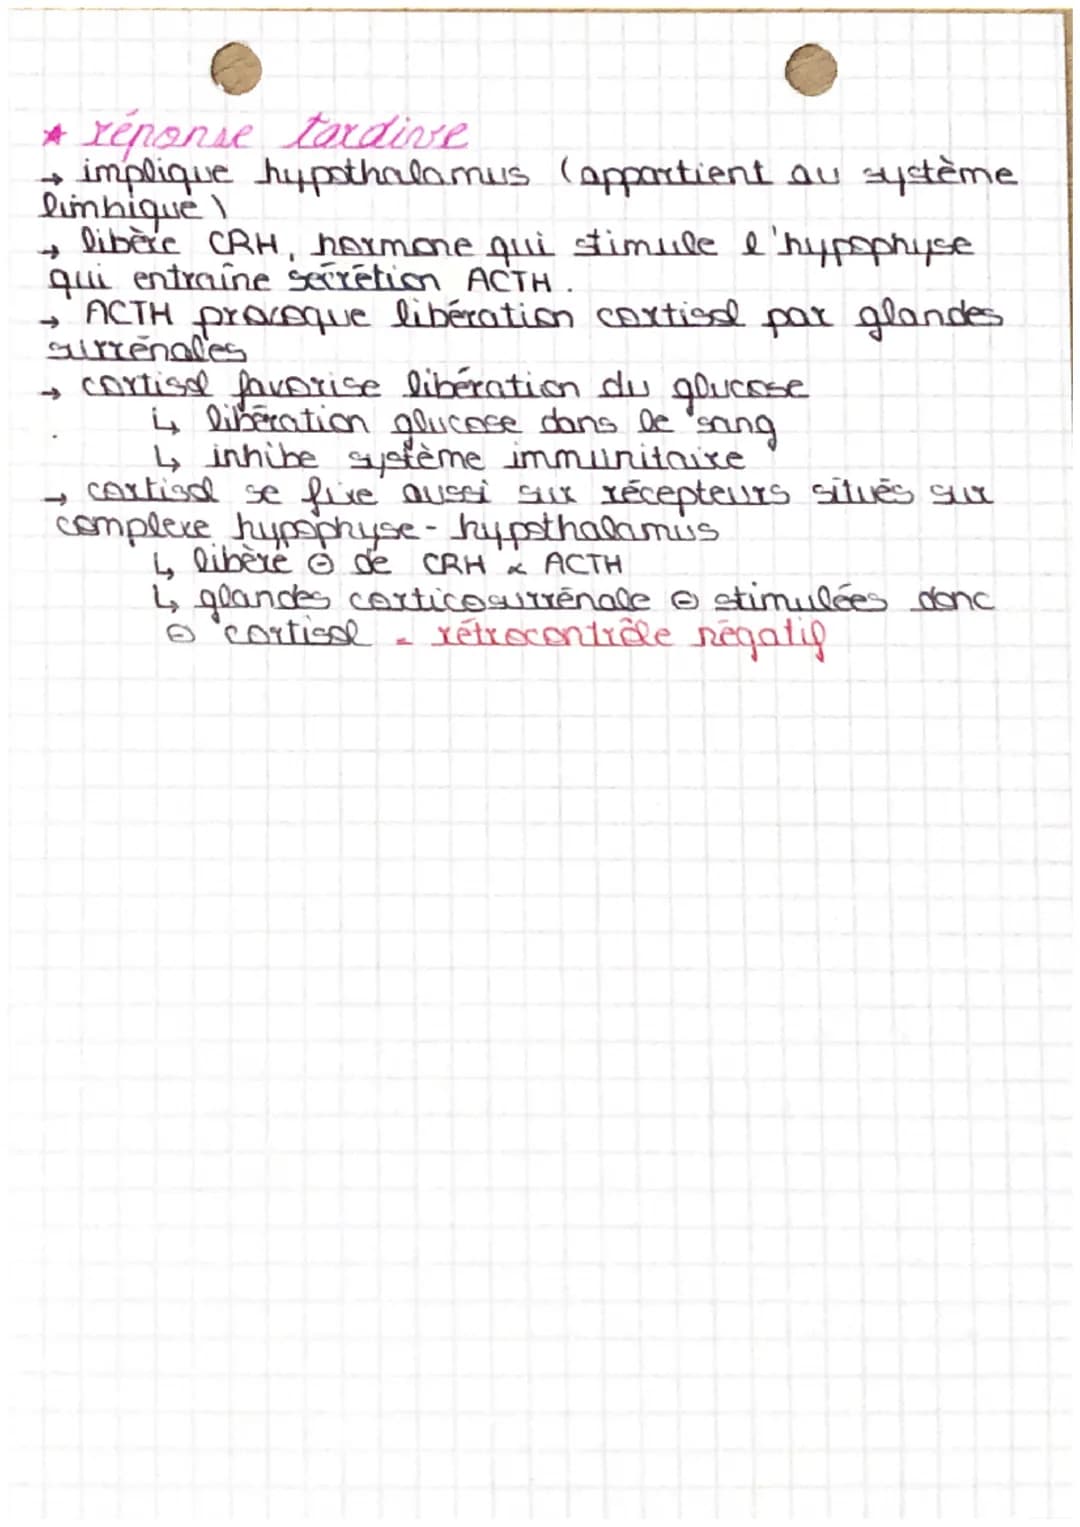 ★ réponse tardive
→ implique hypothalamus (appartient au système
limbique)
→ libère CRH, hormone qui stimule l'hypophyse
qui entraîne secrétion ACTH.
→ ACTH provoque libération cortisol par glandes
surrénales
→ cortisol favorise libération du glucose
↳ libération glucose dans le sang
↳ inhibe système immunitaire
→ cortisol se fixe aussi sur récepteurs situés sur
complexe hypophyse-hypothalamus
↳ libère ⊖ de CRH & ACTH
↳ glandes corticosurrénale ⊖ stimulées donc
⊖ cortisol = rétrocontrôle négatif